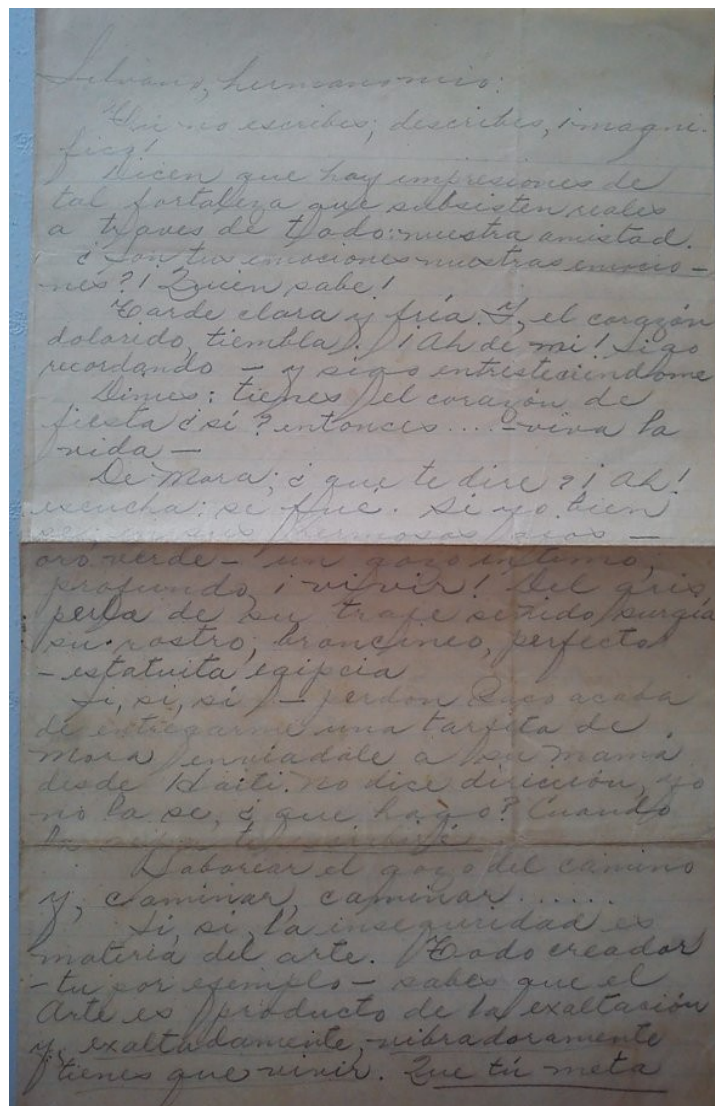 Silvano, hermano mio:
Tú no escribes; describes, ¡magni-
fico!
Dicen que hay impresiones de
tal fortaleza que subsisten reales
a traves de todo: nuestra amistad.
¿Son tus emociones nuestras emocio-
nes? ¡Quien sabe!
Tarde clara y fría. Y, el corazón
dolorido, tiembla. ¡Ah de mi! Sigo
recordando - y sigo entristeciendome
Dimes: tienes el corazón de
fiesta ¿sí? entonces.... - viva la
vida -
De Mora; ¿que te dire? ¡Ah!
escucha: se fué. Si yo bien
hermosos ojos -
oro verde - un gozo intimo,
profundo, ¡vivir! Del gris
perla de su traje surgia
su rostro, broncineo, perfecto
- estatuita egipcia
Si, si, sí - perdon Paco acaba
de entregarme una tarjita de
Mora enviadale a su mamá
desde Haiti. No dice dirección, yo
no la se, ¿que hago? Cuando
la sepa te escribiré.
Saborear el gozo del camino
y, caminar, caminar......
Si, si, la inseguridad es
materia del arte. Todo creador
- tu por ejemplo - sabes que el
Arte es producto de la exaltación
y, exaltadamente, vibradoramente
tienes que vivir. Que tú meta